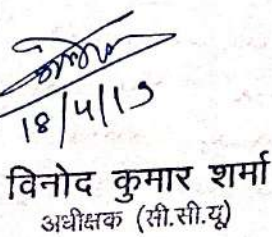 18/4/19
विनोद कुमार शर्मा
अधीक्षक (सी.सी.यू)